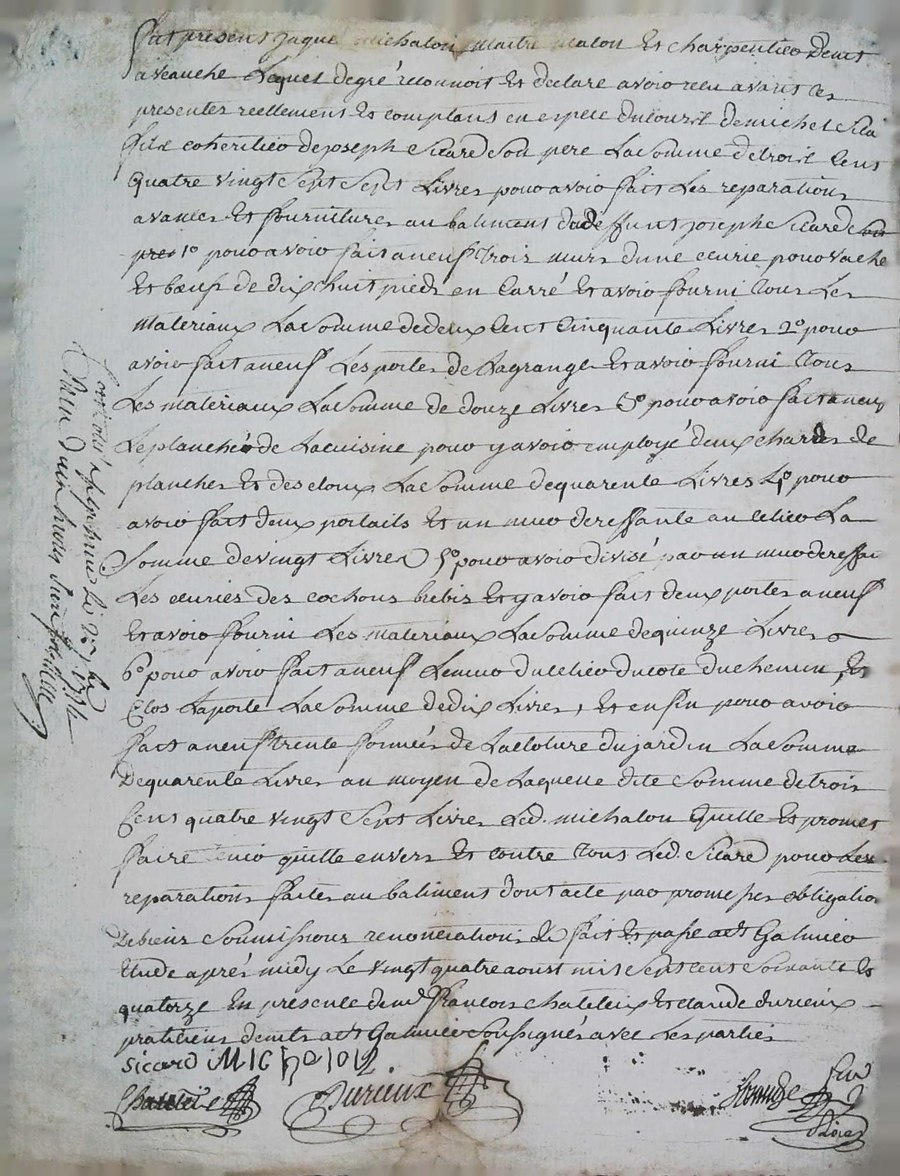 fut present jaque michalon maitre mason et charpentier demt
a veauche Lequel degré reconnoit et declare avoir recu avant ces
presentes reellement et comptant en espece ducours de michel sicard
fils coheritier de joseph sicard son pere La somme de trois cens
quatre vingt sept Livres pour avoir fait Les reparations
avances et fournitures au batiment du deffunt joseph sicard son
pere 1º pour avoir fait a neuf trois murs dune ecurie pour vache
et bœuf de dix huit pieds en carré et avoir fourni tous Les
materiaux La somme de deux cent cinquante Livres 2º pour
avoir fait a neuf Les portes de Lagrange et avoir fourni tous
Les materiaux La somme de douze Livres 3º pour avoir fait a neuf
Le planché de La cuisine pour y avoir employé deux chards de
planches et des cloux La somme de quarente Livres 4º pour
avoir fait deux portails et un mur de reffante au celier La
somme de vingt Livres 5º pour avoir divisé par un mur de reffan
Les ecuries des cochons brebis et y avoir fait deux portes a neuf
et avoir fourni Les materiaux La somme de quinze Livres
6º pour avoir fait a neuf Le mur du celier du coté du chemin et
clos La porte La somme de dix Livres, et enfin pour avoir
fait a neuf trente de La cloture du jardin La somme
de quarente Livres au moyen de Laquelle dite somme de trois
cens quatre vingt sept Livres Led. michalon quitte et promet
faire tenir quitte envers et contre tous Led. sicard pour Les
reparations faites au batiment dont acte par promesses obligation
de biens soumissions renonciations &c fait et passé a st Galmier
etude aprés midy Le vingt quatre aoust mil sept cent soixante et
quatorze en presence de mr françois chatelux et claude durieux
praticiens demts a st Galmier soussignés avec Les parties
sicard MICHALON
Chatelu Durieux
controlé a st galmier Le 1774